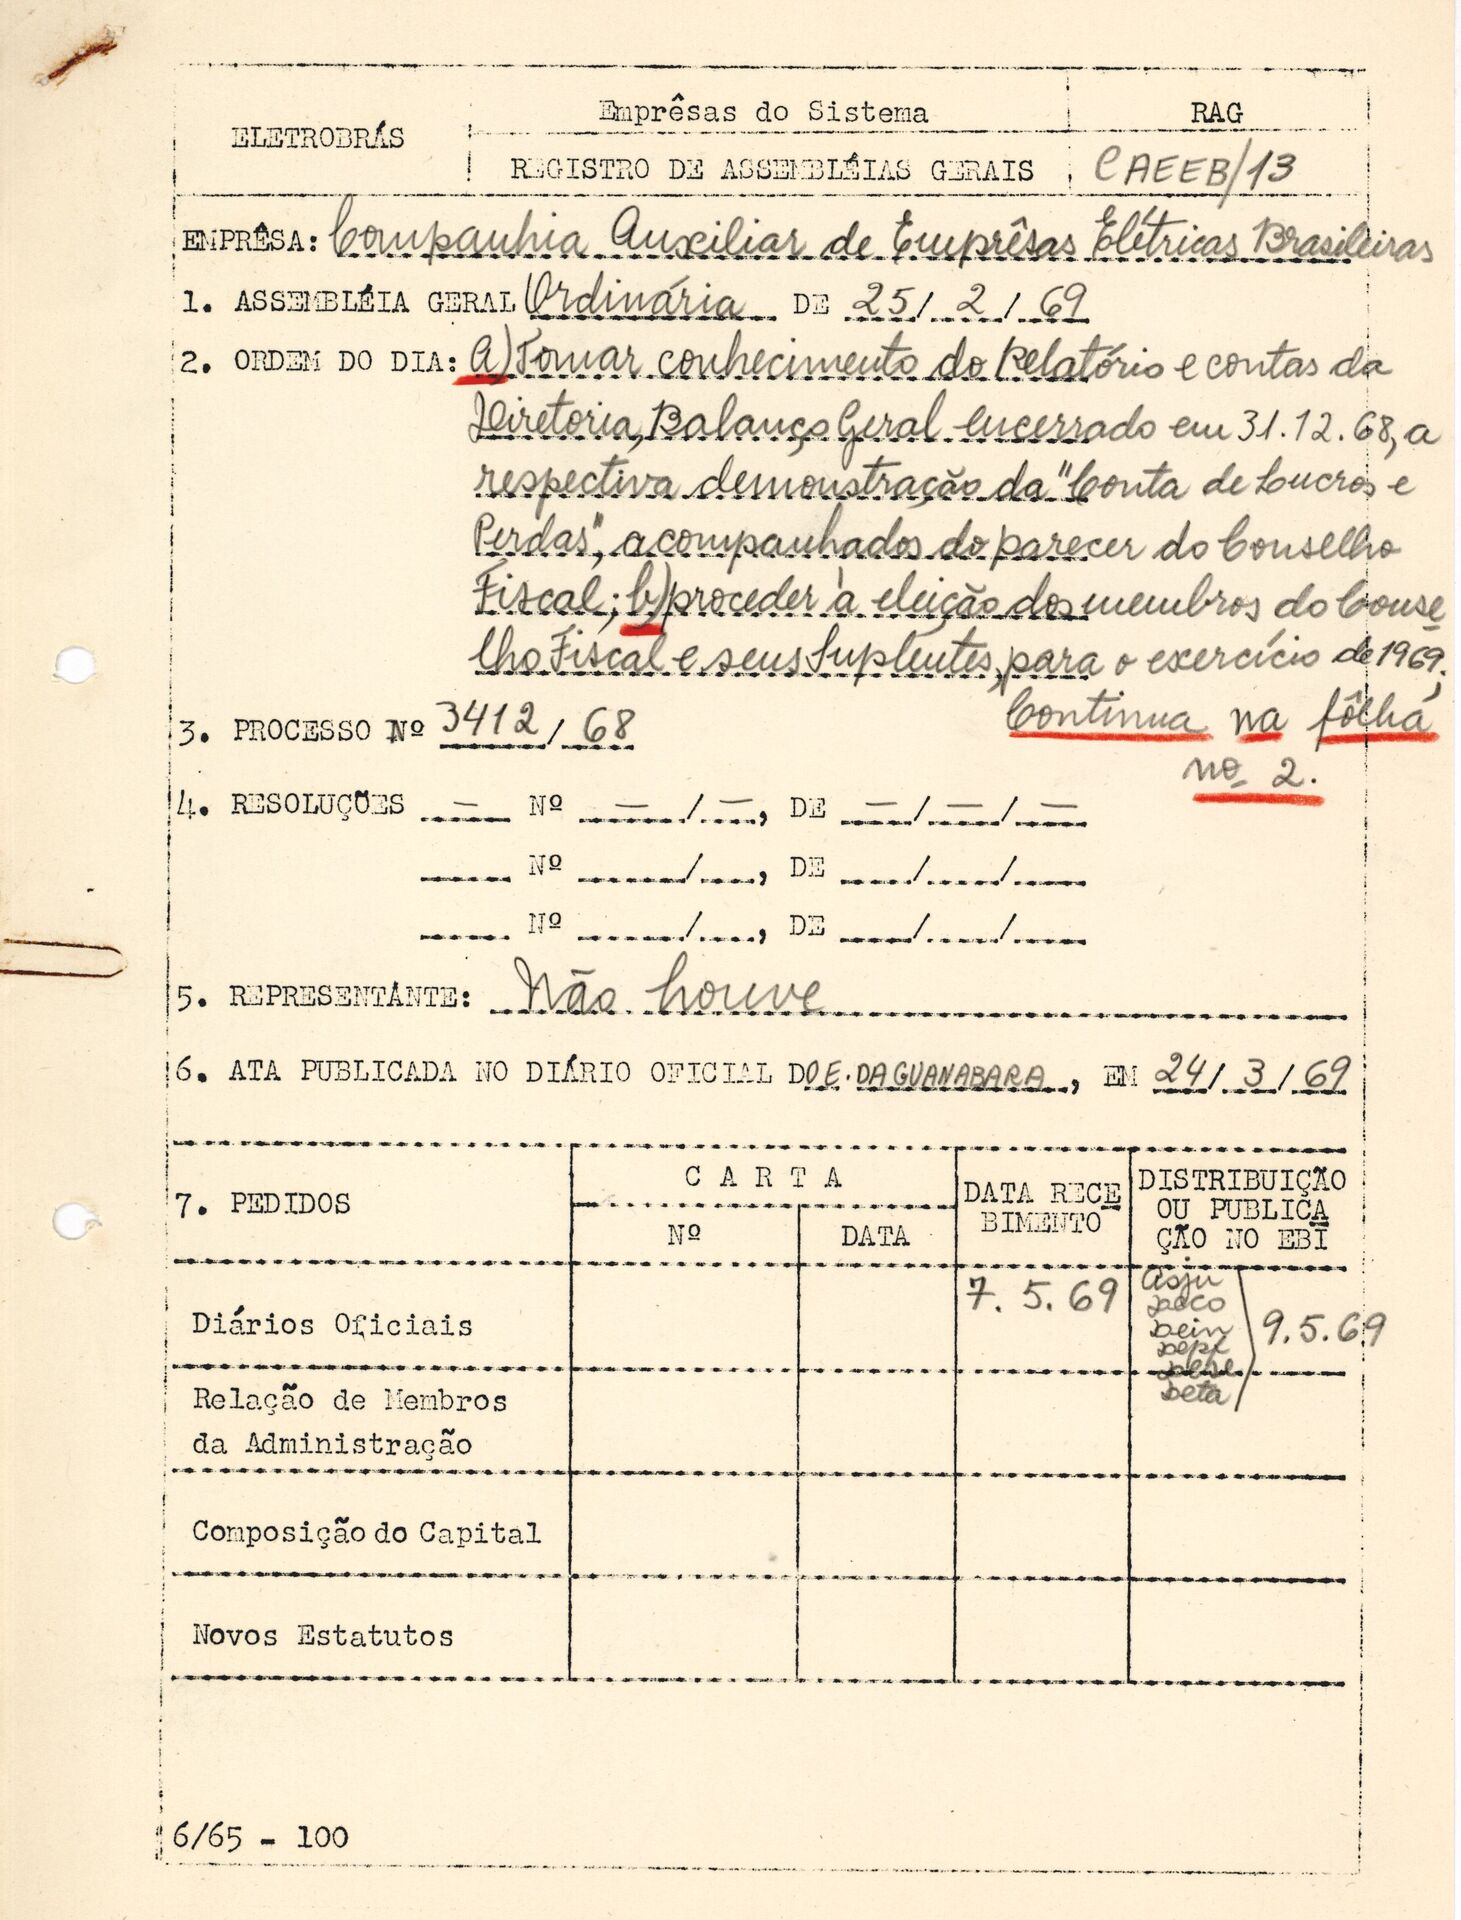 ELETROBRÁS
Emprêsas do Sistema
REGISTRO DE ASSEMBLÉIAS GERAIS
RAG
CAEEB/13
EMPRÊSA: Companhia Auxiliar de Emprêsas Elétricas Brasileiras
1. ASSEMBLÉIA GERAL Ordinária DE 25/2/69
2. ORDEM DO DIA: a) Tomar conhecimento do Relatório e contas da
Diretoria, Balanço Geral encerrado em 31.12.68, a
respectiva demonstração da "Conta de Lucros e
Perdas", acompanhados do parecer do Conselho
Fiscal; b) proceder à eleição dos membros do Conse
lho Fiscal e seus Suplentes, para o exercício de 1969;
Continua na fôlha
nº 2.
3. PROCESSO Nº 3412/68
4. RESOLUÇÕES — Nº —/—, DE —/—/—
Nº /, DE / /
Nº /, DE / /
5. REPRESENTANTE: Não houve
6. ATA PUBLICADA NO DIÁRIO OFICIAL DO E. DA GUANABARA, EM 24/3/69
7. PEDIDOS
CARTA
Nº
DATA
DATA RECE
BIMENTO
DISTRIBUIÇÃO
OU PUBLICA
ÇÃO NO EBI
Diários Oficiais
7.5.69
asju
deco
dein
depe
beta
9.5.69
Relação de Membros
da Administração
Composição do Capital
Novos Estatutos
6/65 - 100